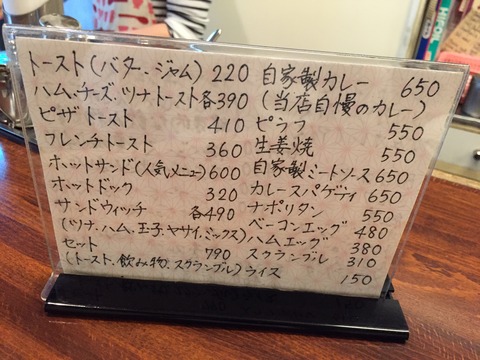 トースト(バター、ジャム) 220
ハム、チーズ、ツナトースト各390
ピザトースト 410
フレンチトースト 360
ホットサンド(人気メニュー)600
ホットドック 320
サンドウィッチ 各490
(ツナ、ハム、玉子、ヤサイ、ミックス)
セット 790
(トースト、飲み物、スクランブル)
自家製カレー 650
(当店自慢のカレー)
ピラフ 550
生姜焼 550
自家製ミートソース 650
カレースパゲティ 650
ナポリタン 550
ベーコンエッグ 480
ハムエッグ 380
スクランブル 310
ライス 150